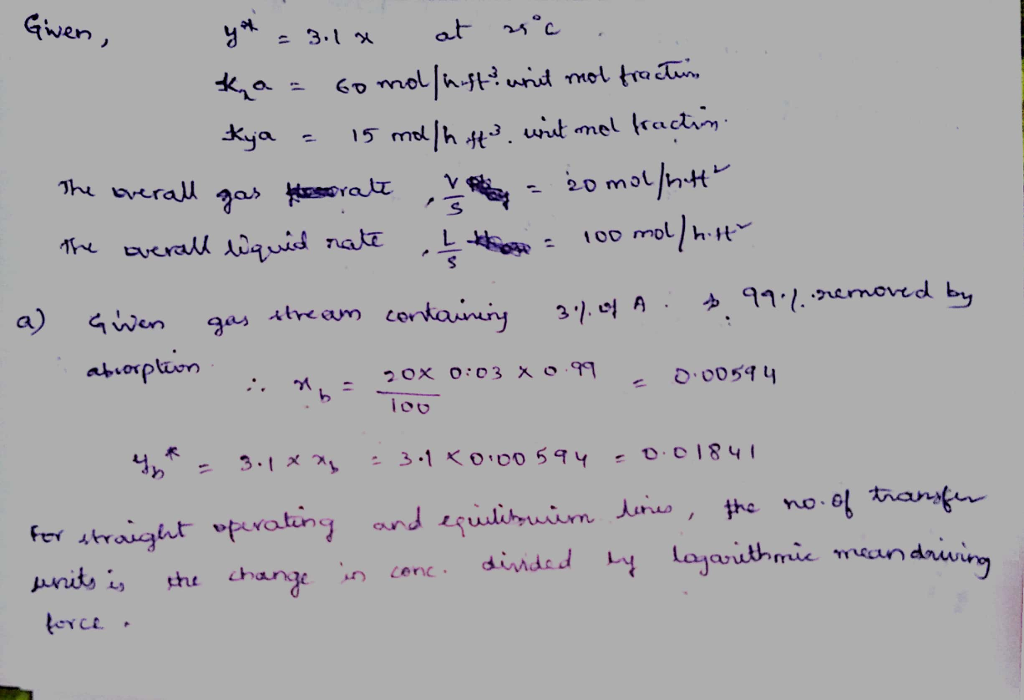 Given, y* = 3.1 x at 25°C.
kxa = 60 mol/h.ft³. unit mol fraction
kya = 15 mol/h ft³. unit mol fraction.
The overall gas rate, V/S = 20 mol/h.ft²
The overall liquid rate, L/S = 100 mol/h.ft²
a) Given gas stream containing 3% of A. 99% removed by
absorption. ∴ xb = 20 x 0.03 x 0.99 / 100 = 0.00594
yb* = 3.1 x xb = 3.1 x 0.00594 = 0.01841
For straight operating and equilibrium lines, the no. of transfer
units is the change in conc. divided by logarithmic mean driving
force.